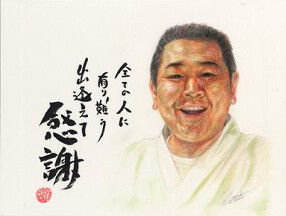 全ての人に
有り難う
出逢えて
感謝